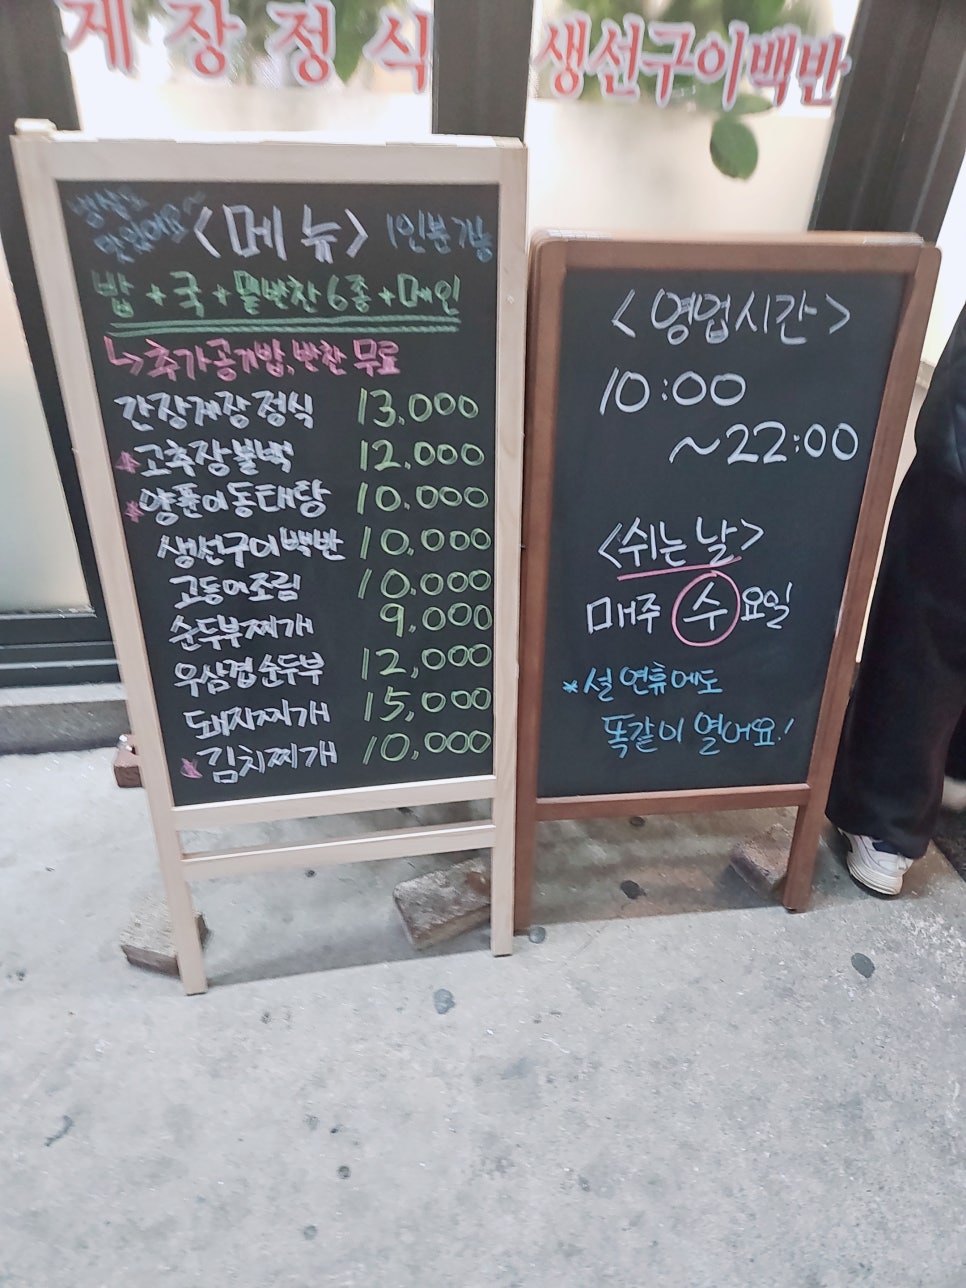 게장정식
생선구이백반
<메뉴>
1인분 가능
맛있어요~
밥 + 국 + 밑반찬 6종 + 메인
↳ 추가공기밥, 반찬 무료
간장게장정식 13,000
*고추장불백 12,000
*양푼이동태탕 10,000
생선구이백반 10,000
고등어조림 10,000
순두부찌개 9,000
우삼겹순두부 12,000
돼지찌개 15,000
*김치찌개 10,000
<영업시간>
10:00
~22:00
<쉬는 날>
매주 수요일
*설 연휴에도
똑같이 열어요!